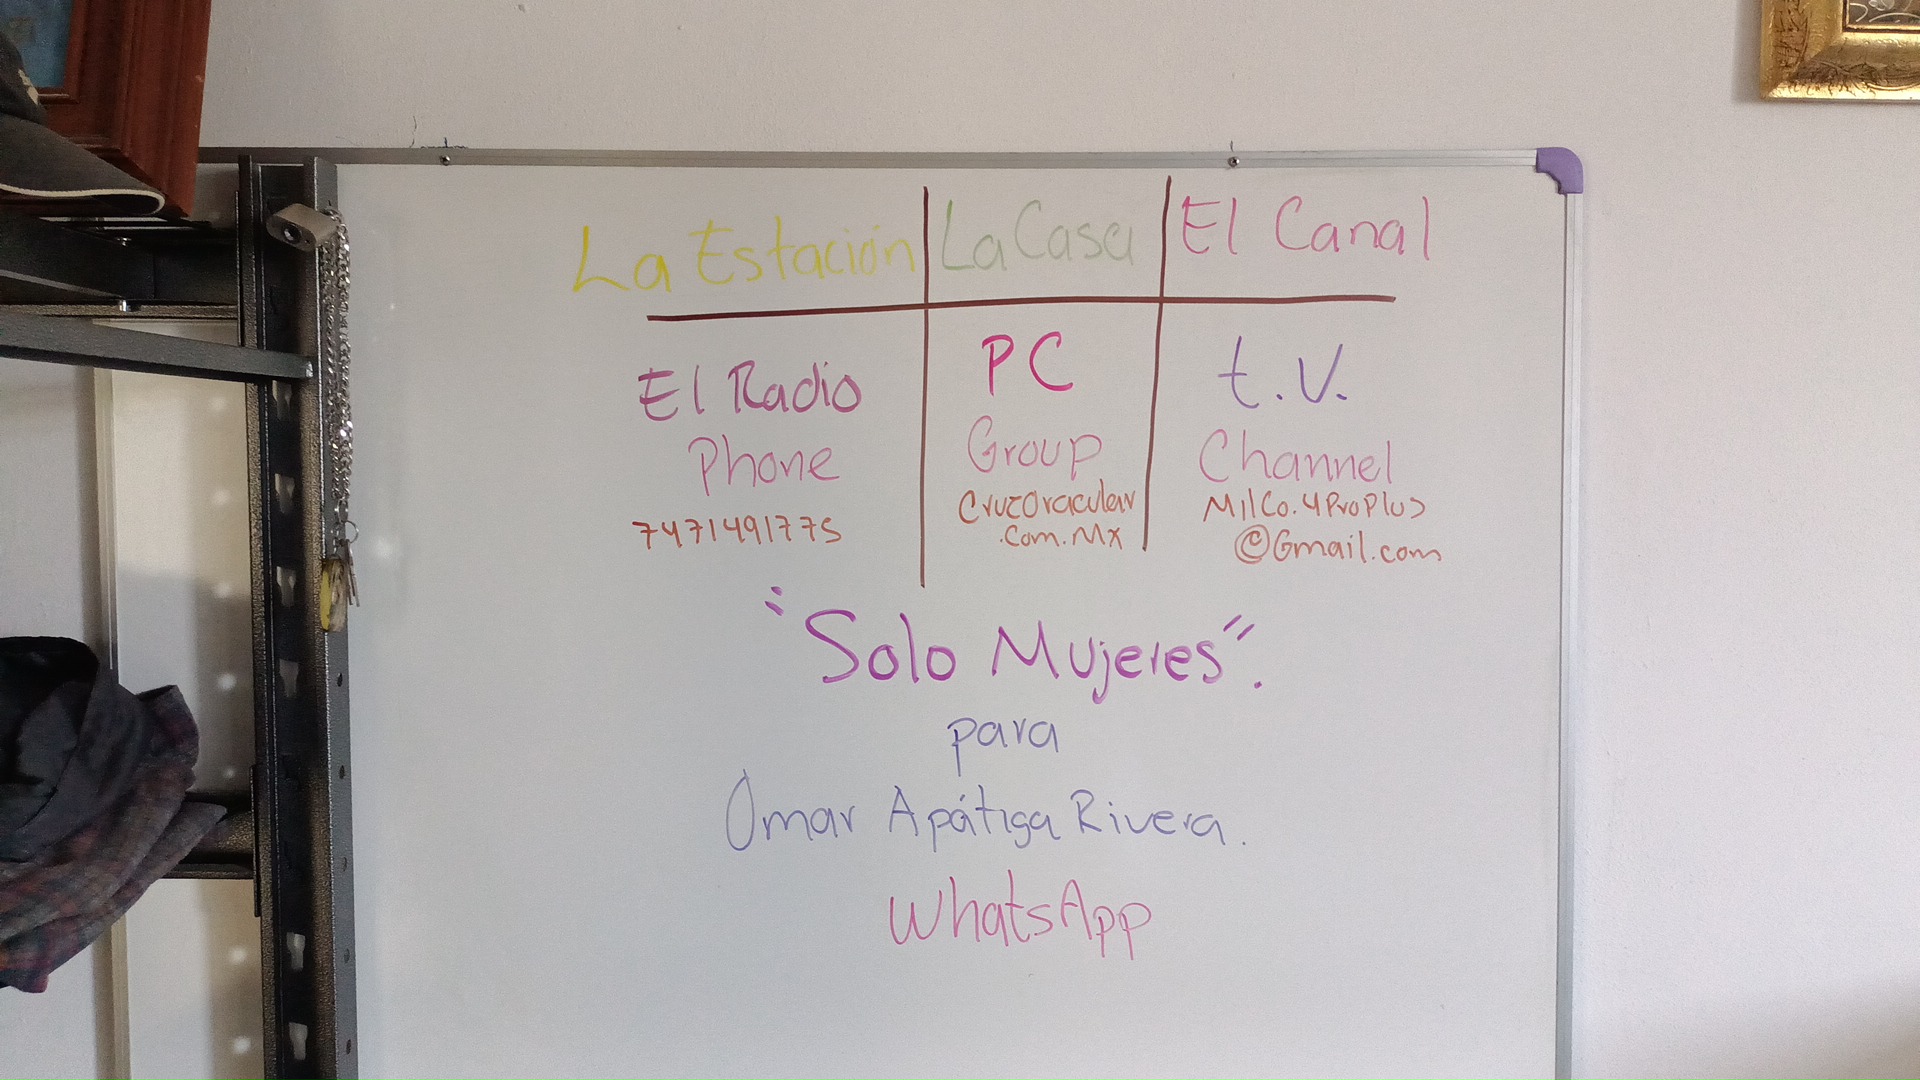 La Estación La Casa El Canal
El Radio PC t.V.
Phone Group Channel
7471491775 CruzOracular MilCo.4ProPlus
.Com.Mx @Gmail.com
"Solo Mujeres".
para
Omar Apátiga Rivera.
WhatsApp